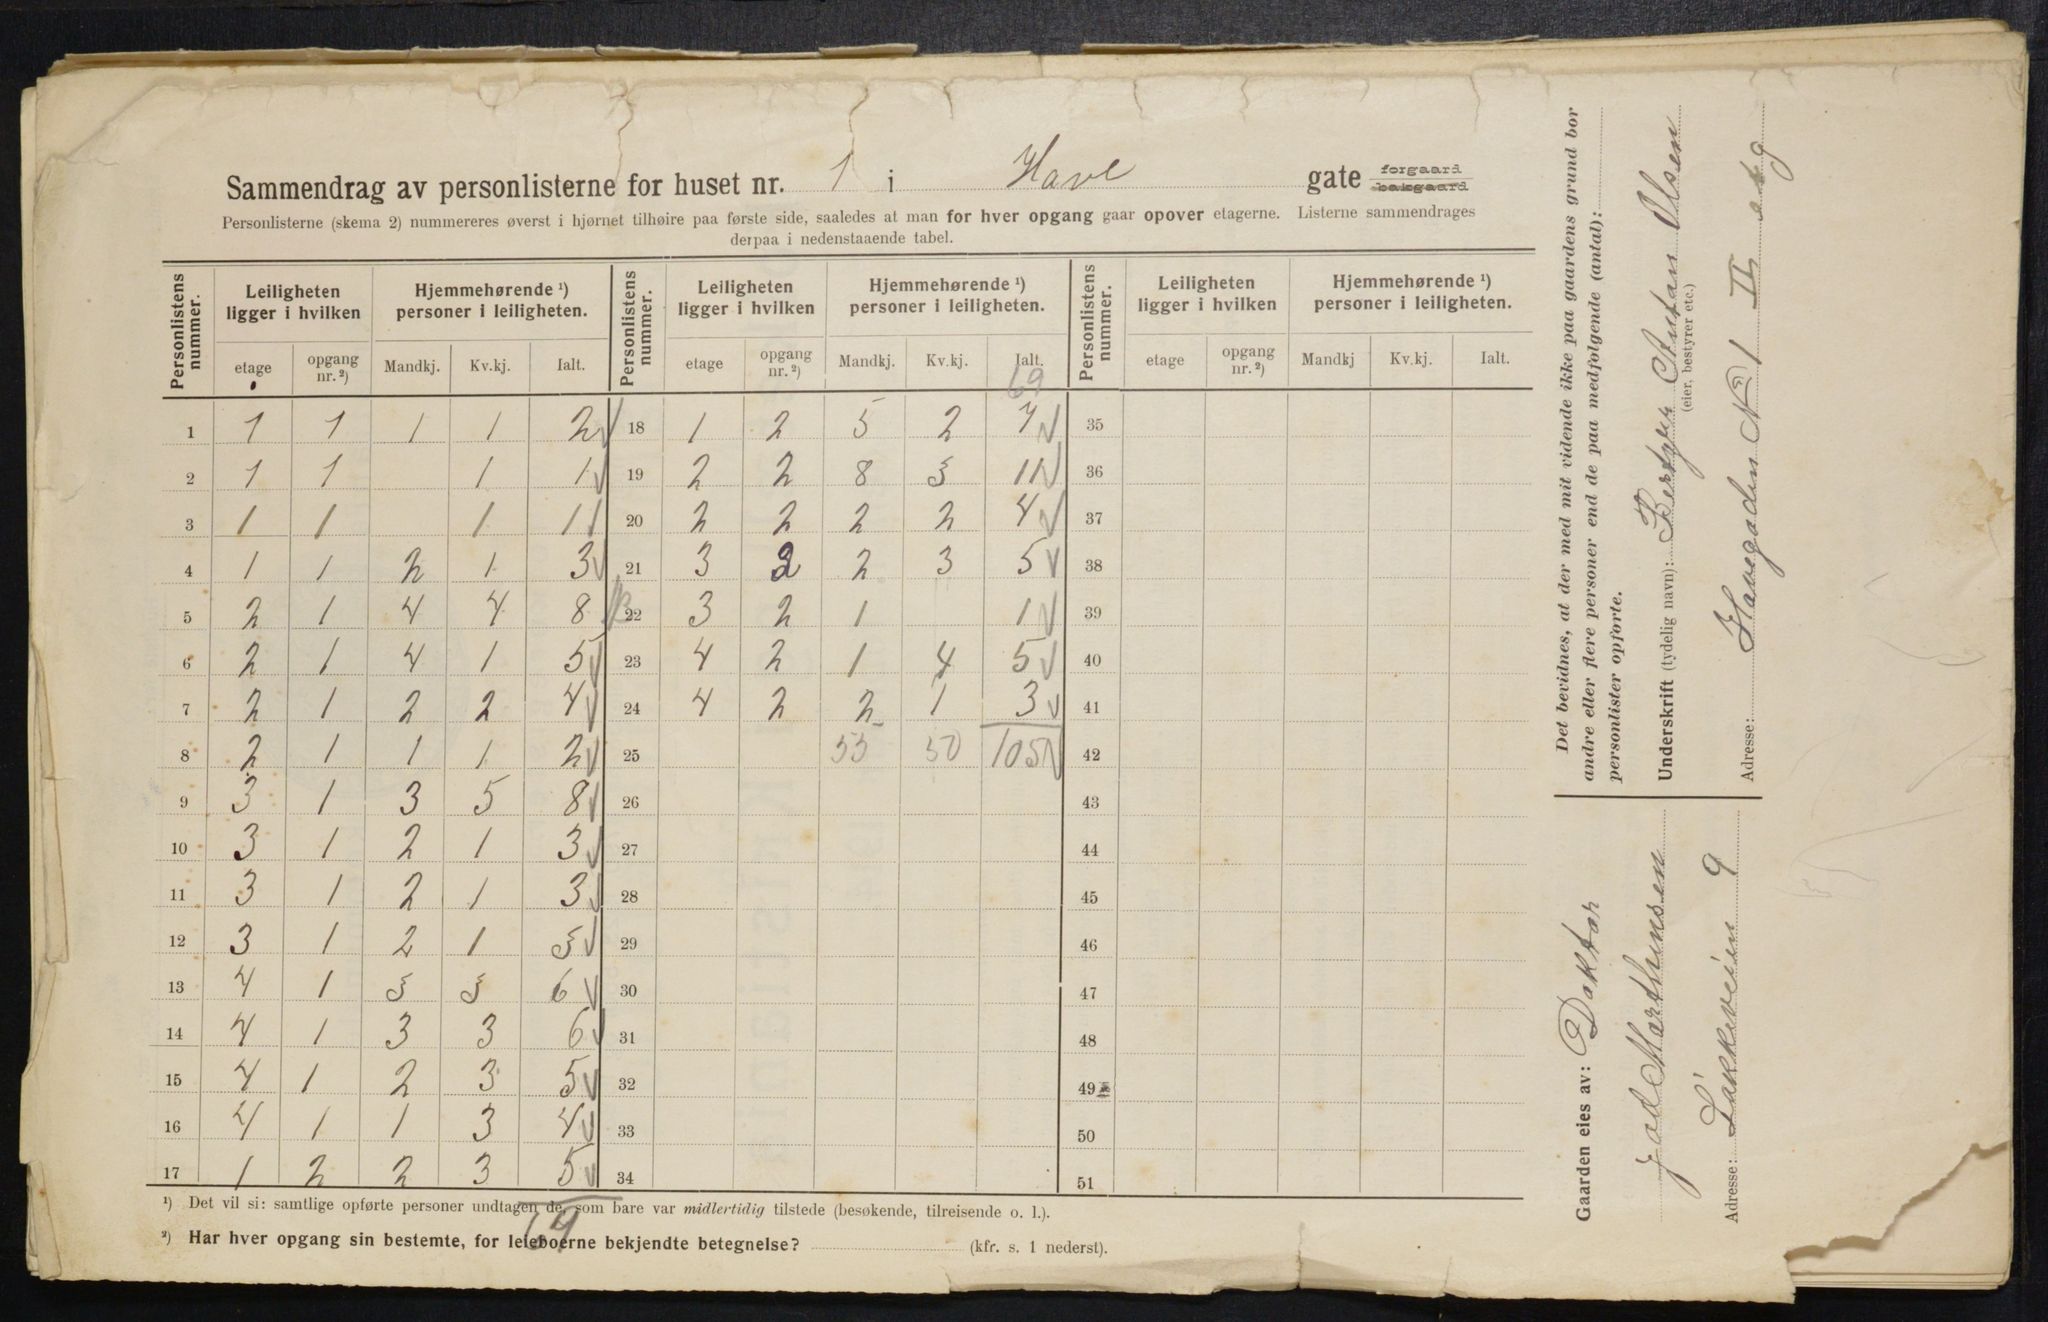 Sammendrag av personlisterne for huset nr. 1 i Have gate forgaard bakgaard
Personlisterne (skema 2) nummereres øverst i hjørnet tilhøire paa første side, saaledes at man for hver opgang gaar opover etagerne. Listerne sammendrages
derpaa i nedenstaaende tabel.
Personlistens nummer. Leiligheten ligger i hvilken Hjemmehørende ¹) personer i leiligheten. Personlistens nummer. Leiligheten ligger i hvilken Hjemmehørende ¹) personer i leiligheten. Personlistens nummer. Leiligheten ligger i hvilken Hjemmehørende ¹) personer i leiligheten.
etage opgang nr. ²) Mandkj. Kv.kj. Ialt. etage opgang nr. ²) Mandkj. Kv.kj. Ialt. etage opgang nr. ²) Mandkj Kv.kj. Ialt.
69
1 1 1 1 1 2 √ 18 1 2 5 2 7 √ 35
2 1 1 1 1 √ 19 2 2 8 3 11 √ 36
3 1 1 1 1 √ 20 2 2 2 2 4 √ 37
4 1 1 2 1 3 √ 21 3 2 2 3 5 √ 38
5 2 1 4 4 8 √ 22 3 2 1 1 √ 39
6 2 1 4 1 5 √ 23 4 2 1 4 5 √ 40
7 2 1 2 2 4 √ 24 4 2 2 1 3 √ 41
8 2 1 1 1 2 √ 25 55 50 105 √ 42
9 3 1 3 5 8 √ 26 43
10 3 1 2 1 3 √ 27 44
11 3 1 2 1 3 √ 28 45
12 3 1 2 1 3 √ 29 46
13 4 1 3 3 6 √ 30 47
14 4 1 3 3 6 √ 31 48
15 4 1 2 3 5 √ 32 49
16 4 1 1 3 4 √ 33 50
17 1 2 2 3 5 √ 34 51
69
¹) Det vil si: samtlige opførte personer undtagen de, som bare var midlertidig tilstede (besøkende, tilreisende o. l.).
²) Har hver opgang sin bestemte, for leieboerne bekjendte betegnelse? (kfr. s. 1 nederst).
Det bevidnes, at der med mit vidende ikke paa gaardens grund bor
andre eller flere personer end de paa medfølgende (antal):
personlister opførte.
Underskrift (tydelig navn): Olsen
(eier, bestyrer etc.)
Adresse: Havegaden No 1 II etg
Gaarden eies av: Doktor
Marthinsen
Adresse: Løkkeveien 9